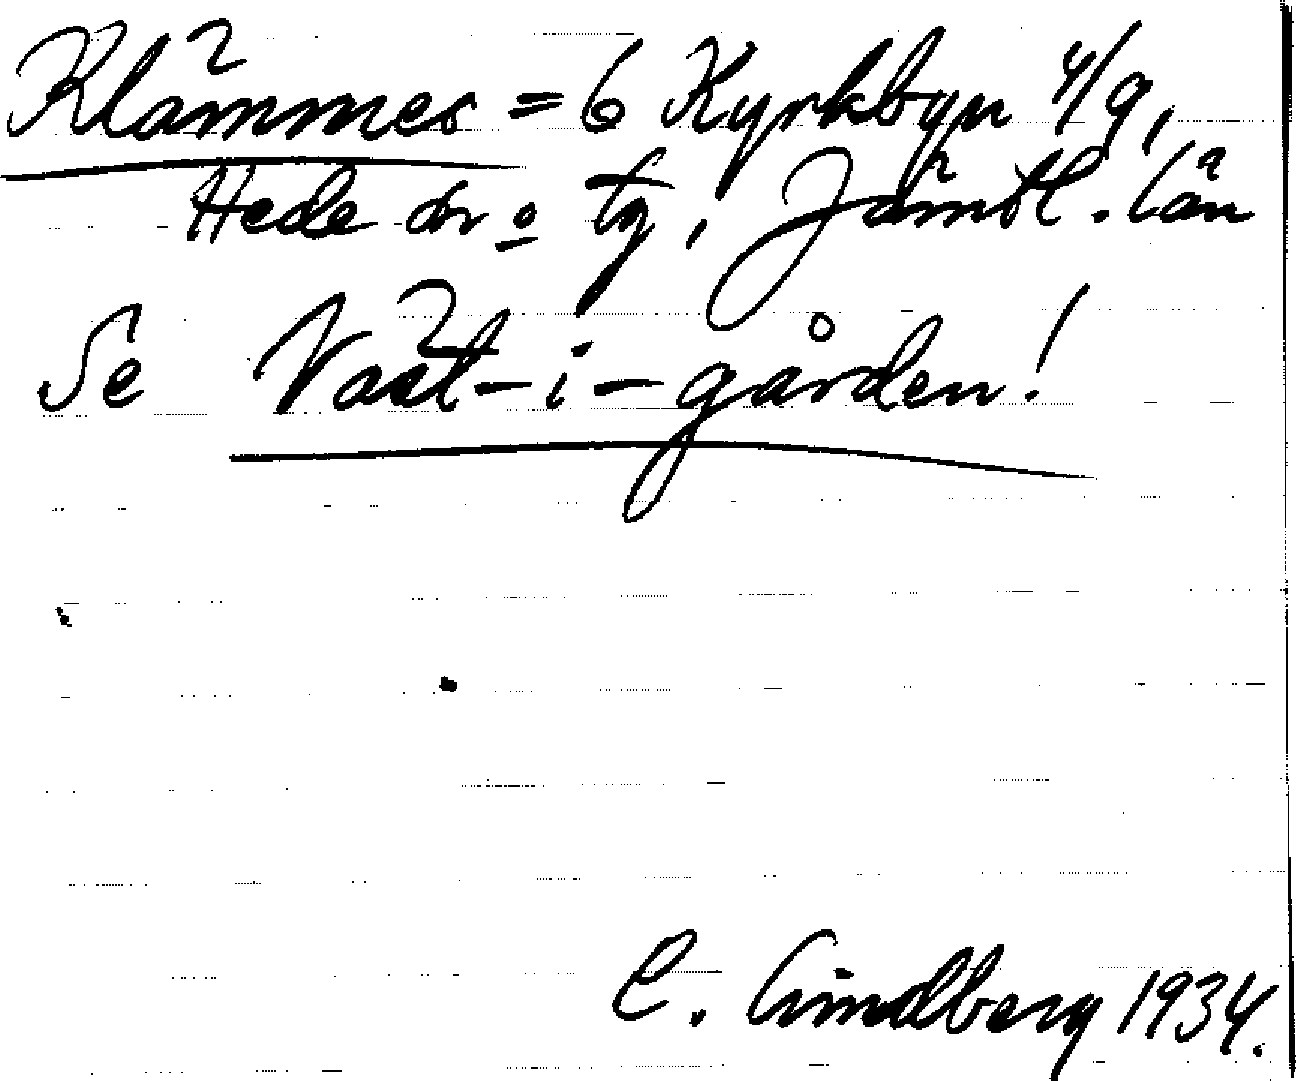 Klämmes = 6 Kyrkbyn 4/9,
Hede sn o tg, Jämtl. län
Se Väst-i-gården!
C. Lindberg 1934.